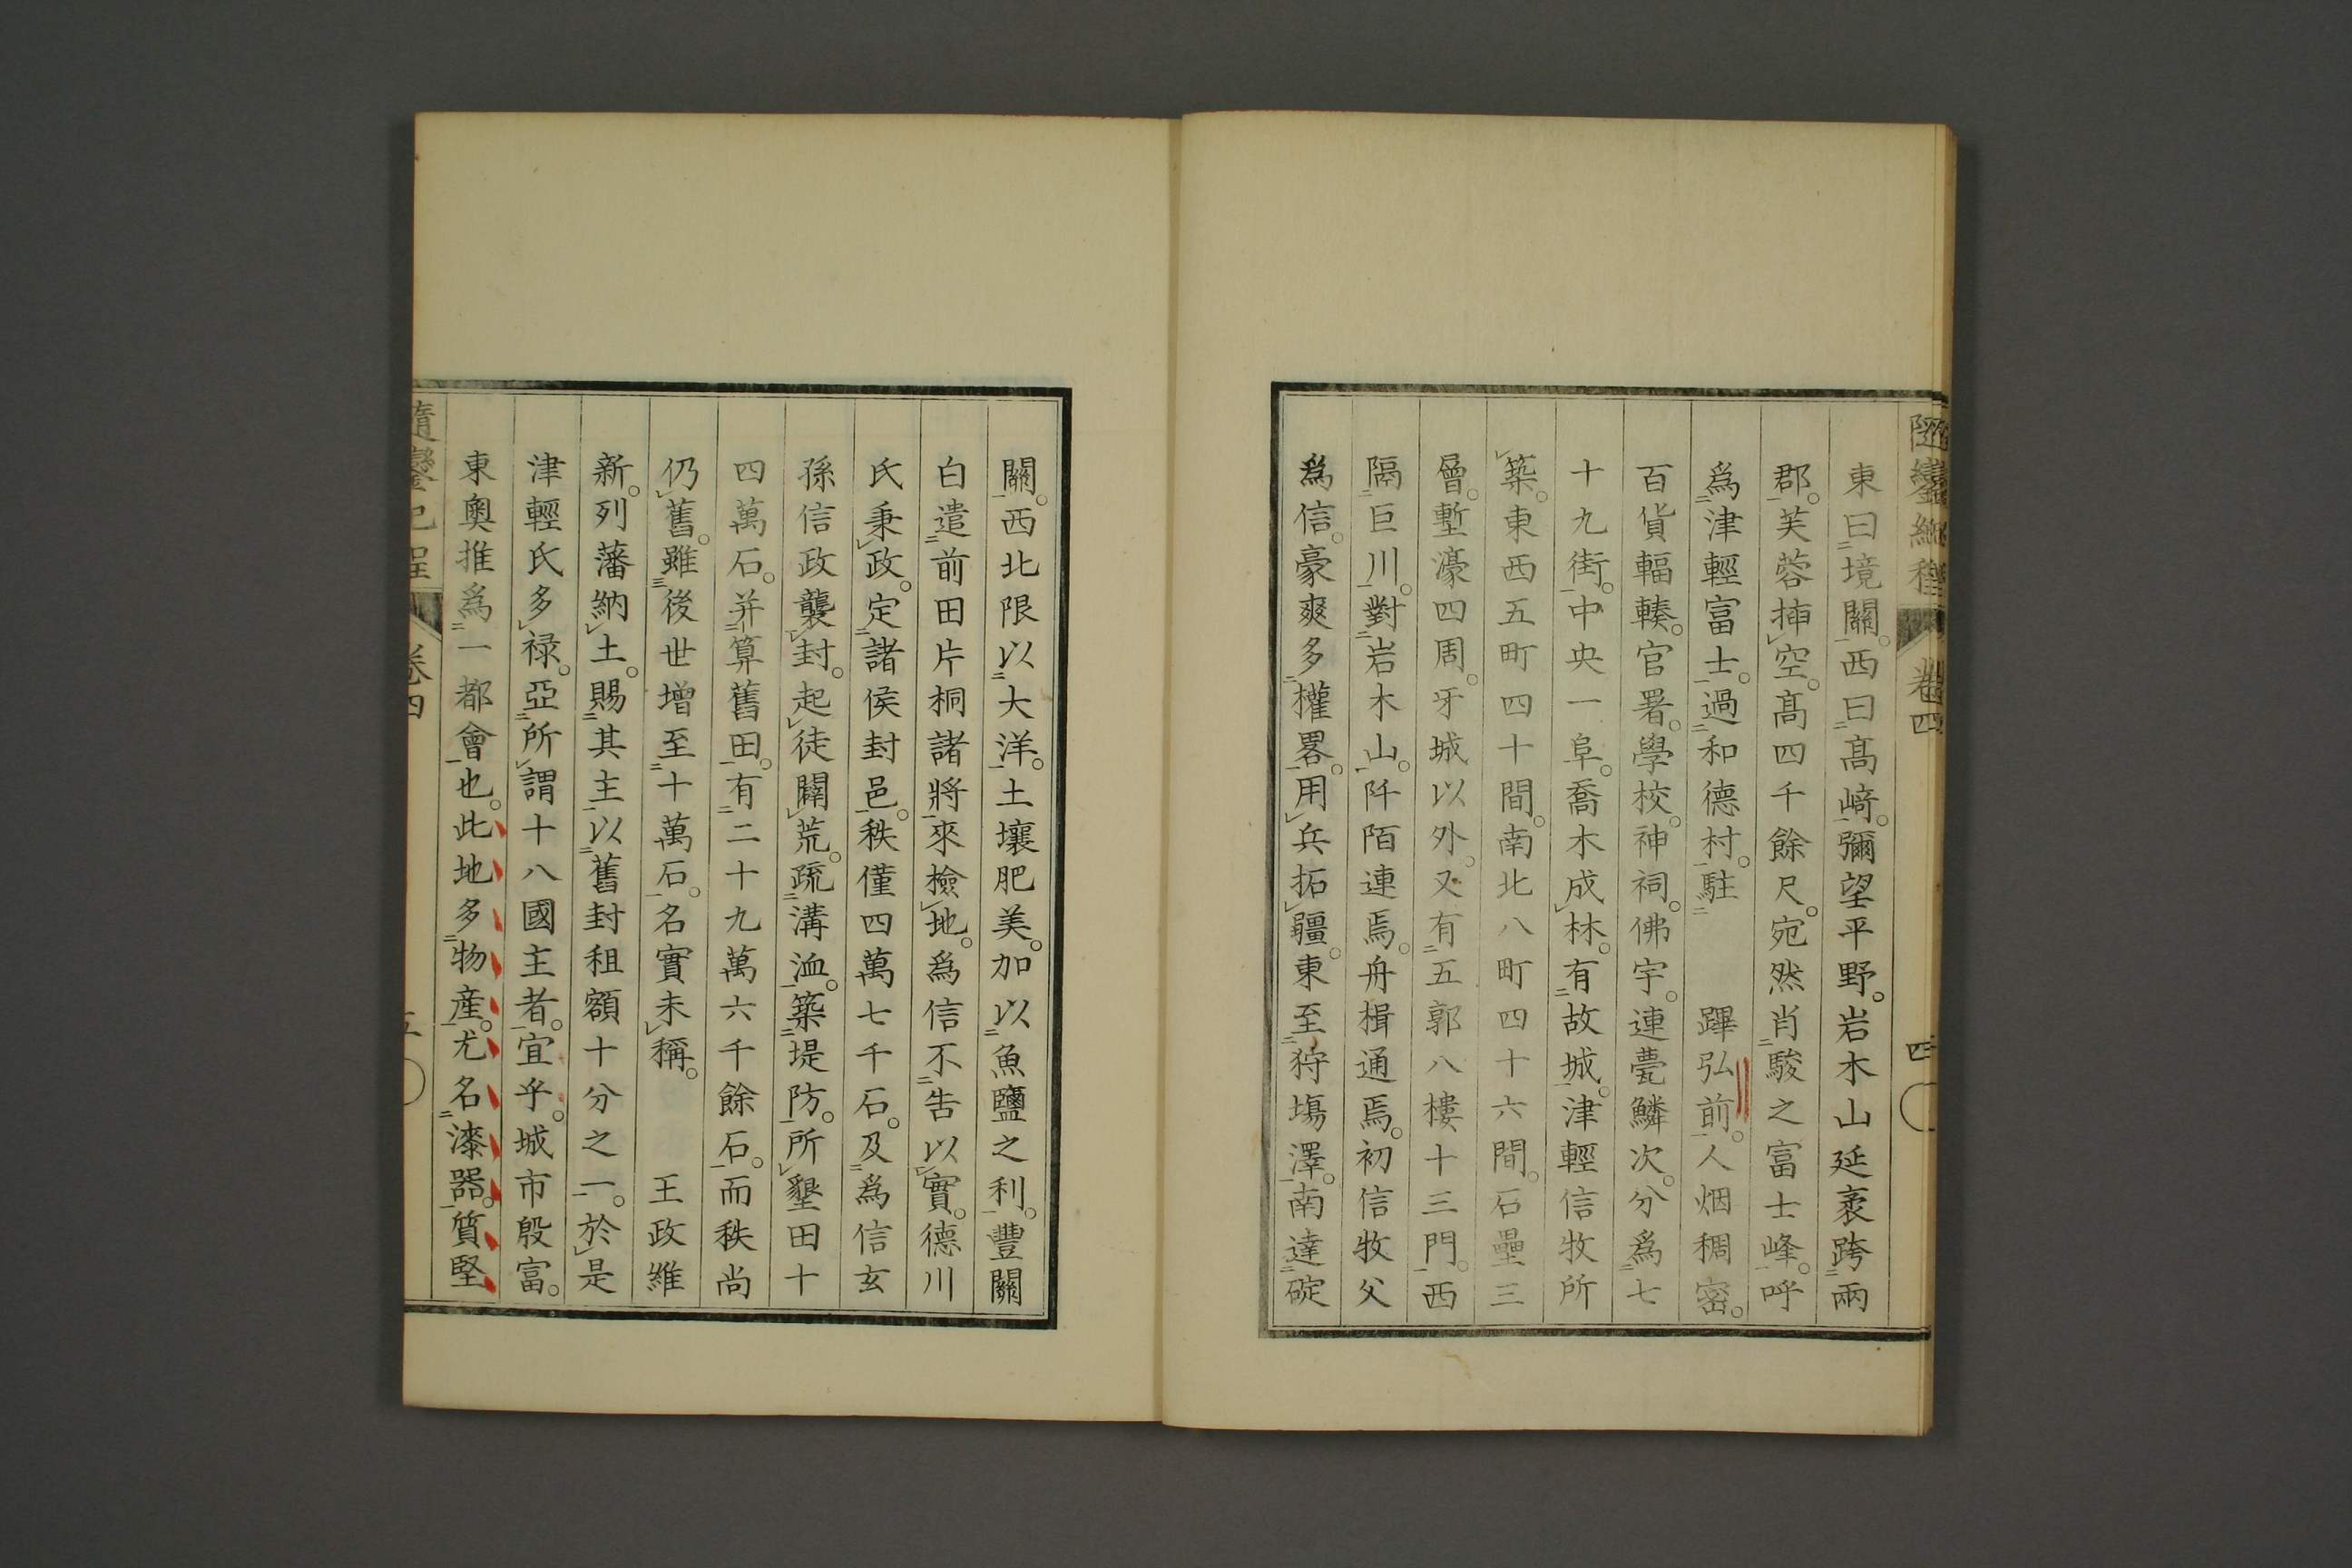 隨鑾紀程 卷四 四
東曰境關。西曰髙﨑。彌望平野。岩木山延袤跨兩
郡。芙蓉揷空。髙四千餘尺。宛然肖駿之富士峰。呼
爲津輕富士。過和德村。駐 蹕弘前。人烟稠密。
百貨輻輳。官署。學校。神祠。佛宇。連甍鱗次。分爲七
十九街。中央一阜。喬木成林。有故城。津輕信牧所
築。東西五町四十間。南北八町四十六間。石壘三
層。塹濠四周。牙城以外。又有五郭八樓十三門。西
隔巨川。對岩木山。阡陌連焉。舟楫通焉。初信牧父
爲信。豪爽多權畧。用兵拓疆。東至狩塲澤。南達碇
關。西北限以大洋。土壤肥美。加以魚鹽之利。豐關
白遣前田片桐諸將來檢地。爲信不告以實。德川
氏秉政。定諸侯封邑。秩僅四萬七千石。及爲信玄
孫信政襲封。起徒闢荒。疏溝洫。築堤防。所墾田十
四萬石。并算舊田。有二十九萬六千餘石。而秩尚
仍舊。雖後世增至十萬石。名實未稱。 王政維
新。列藩納土。賜其主以舊封租額十分之一。於是
津輕氏多禄。亞所謂十八國主者。宜乎。城市殷富。
東奥推爲一都會也。此地多物産。尤名漆器。質堅
隨鑾紀程 卷四 五